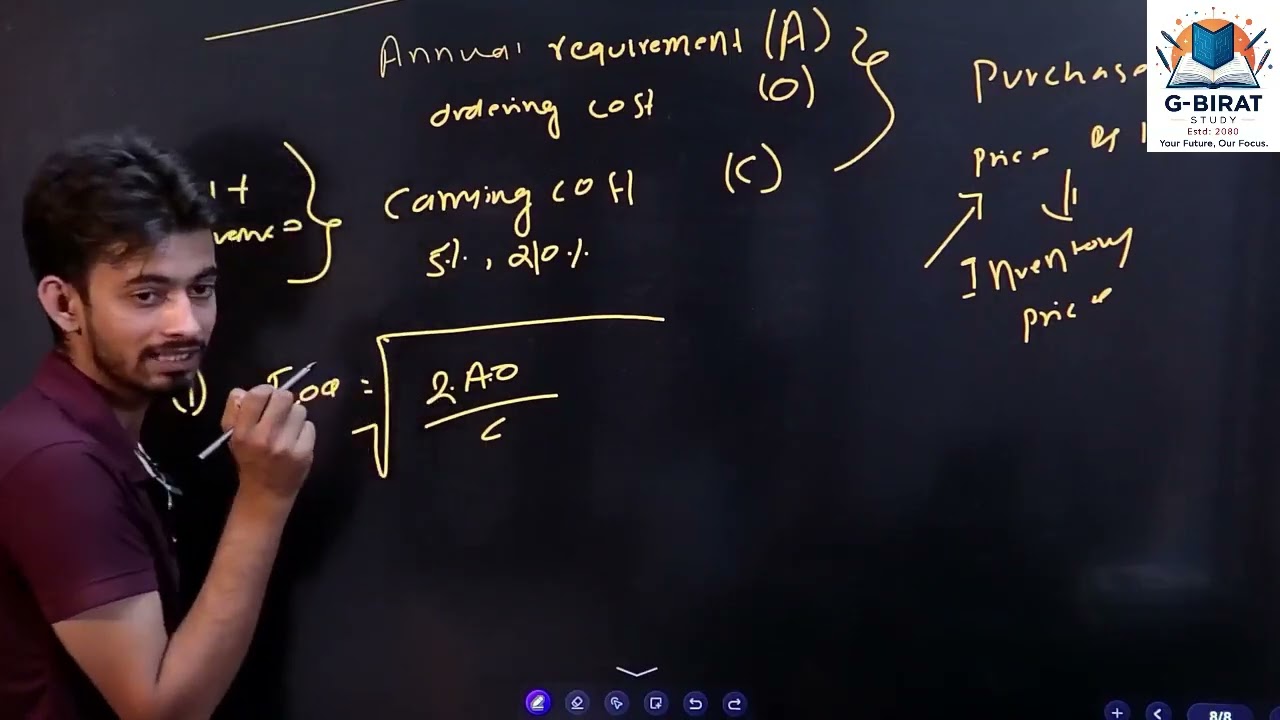 Annual requirement (A)
ordering cost (O)
Carrying cost (C)
5%, 20%
(1) EOQ = √
2.A.O
C
Purchase
price
Inventory
price
G-BIRAT
STUDY
Estd: 2080
Your Future, Our Focus.
8/8